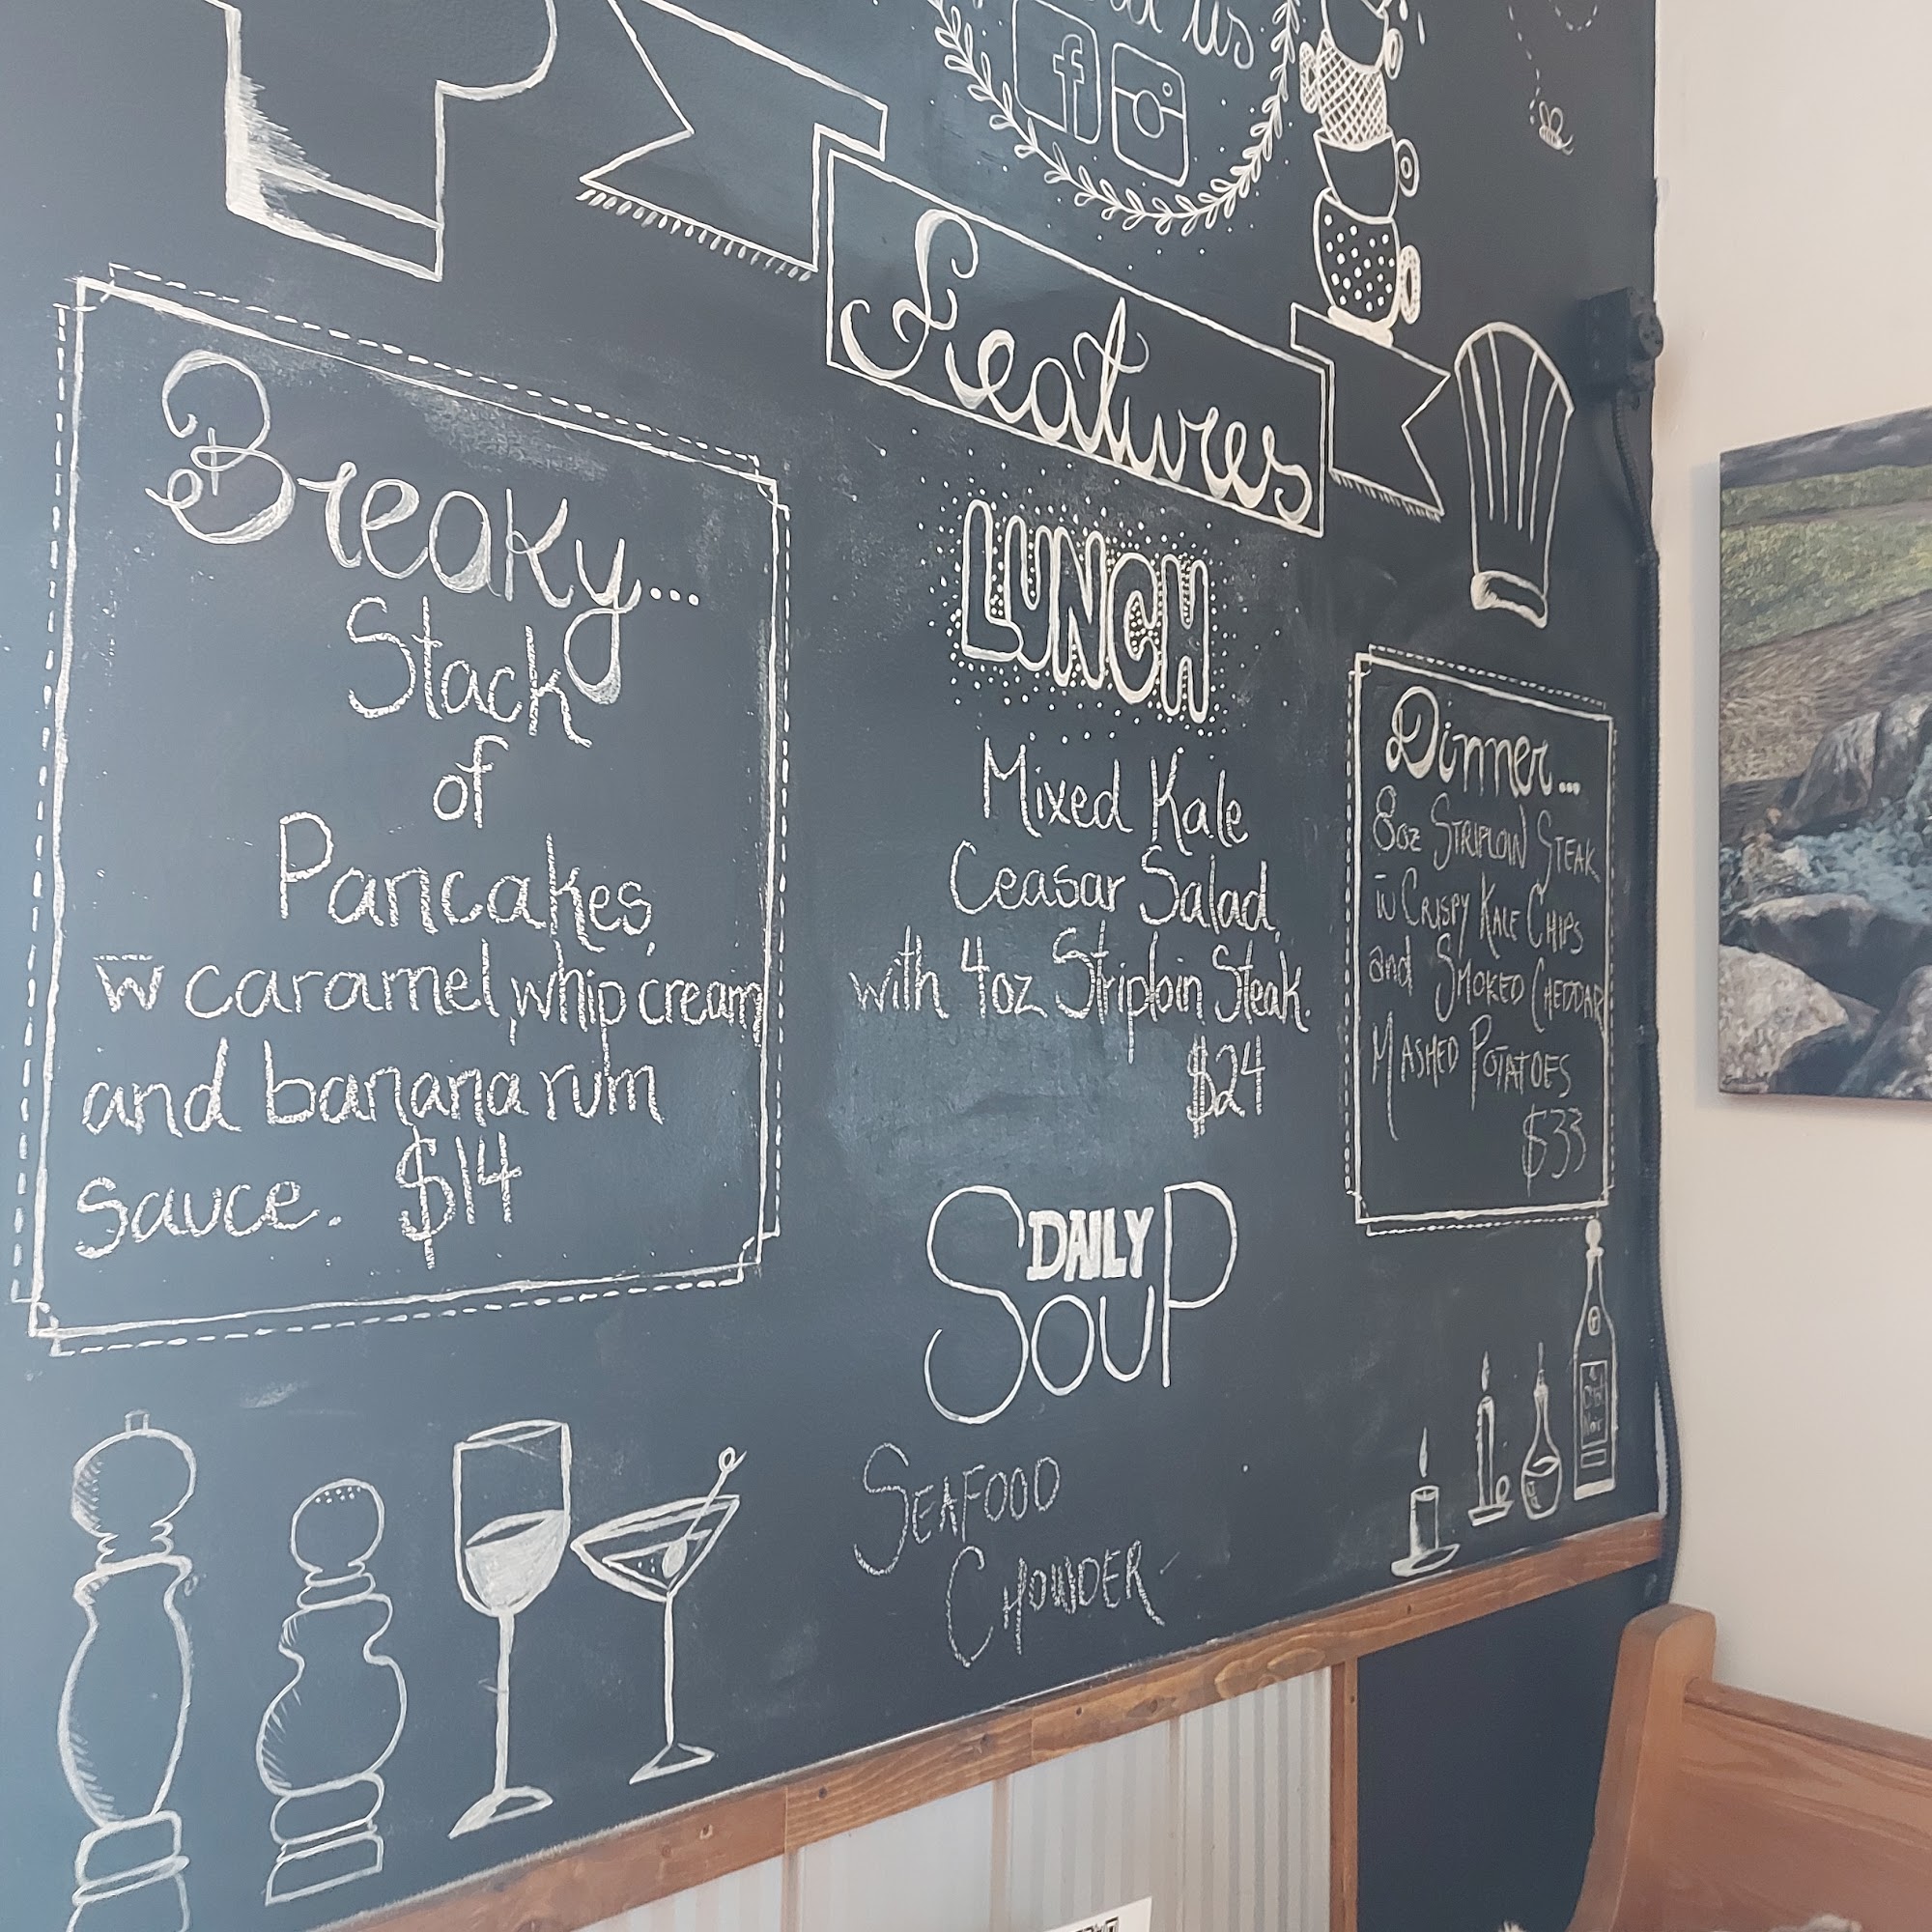 us
f
Features
Breaky...
Stack
of
Pancakes,
w̄ caramel, whip cream
and banana rum
sauce. $14
LUNCH
Mixed Kale
Ceasar Salad
with 4oz Striploin Steak.
$24
DAILY
SOUP
SEAFOOD
CHOWDER
Dinner...
8oz STRIPLOIN STEAK
w̄ CRISPY KALE CHIPS
and SMOKED CHEDDAR
MASHED POTATOES
$33